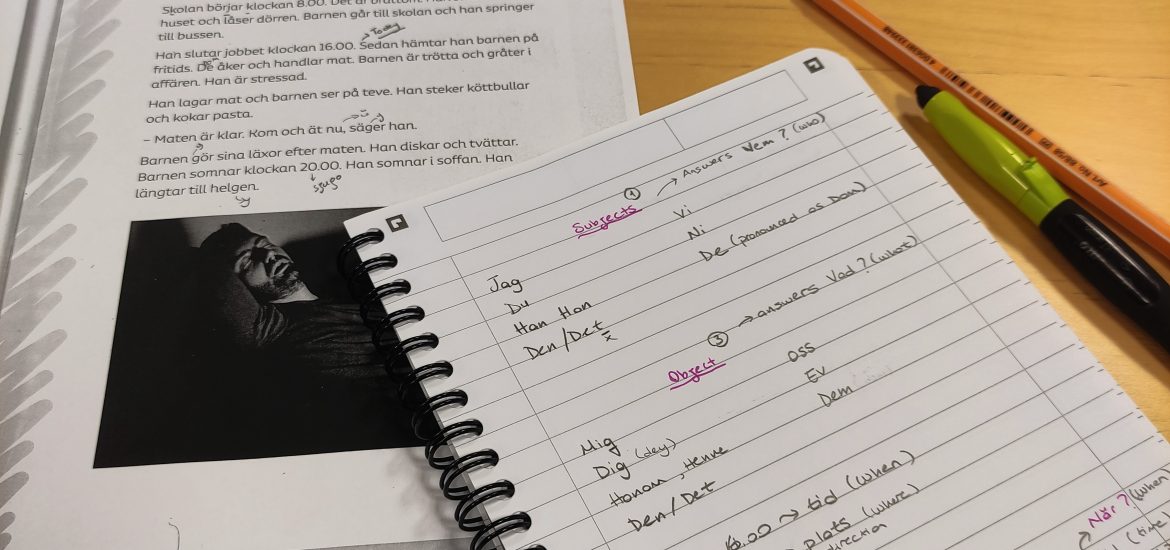 Skolan börjar klockan 8.00. Det är
huset och låser dörren. Barnen går till skolan och han springer
till bussen.
Today
Han slutar jobbet klockan 16.00. Sedan hämtar han barnen på
fritids. De åker och handlar mat. Barnen är trötta och gråter i
affären. Han är stressad.
Han lagar mat och barnen ser på teve. Han steker köttbullar
och kokar pasta.
– Maten är klar. Kom och ät nu, säger han.
Barnen gör sina läxor efter maten. Han diskar och tvättar.
Barnen somnar klockan 20.00. Han somnar i soffan. Han
längtar till helgen.
① → Answers Vem? (who)
Subjects
Jag Vi
Du Ni
Han Hon De (pronounced as Dom)
Den/Det
③ → answers Vad? (what)
Object
Mig oss
Dig (dey) Er
Honom, Henne Dem
Den/Det
16.00 → tid (when)
plats (where)
direction
När? (when)
(time)